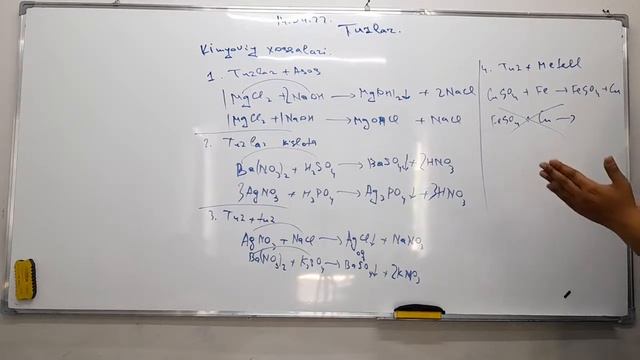 14.04.22
Tuzlar.
Kimyoviy xossalari.
1. Tuzlar + Asos
1MgCl₂ + 2NaOH → Mg(OH)₂↓ + 2NaCl
1MgCl₂ + 1NaOH → MgOHCl + NaCl
2. Tuzlar kislota
Ba(NO₃)₂ + H₂SO₄ → BaSO₄↓ + 2HNO₃
3AgNO₃ + H₃PO₄ → Ag₃PO₄↓ + 3HNO₃
3. Tuz + tuz
AgNO₃ + NaCl → AgCl↓ + NaNO₃
oq
Ba(NO₃)₂ + K₂SO₄ → BaSO₄↓ + 2KNO₃
4. Tuz + Metall
CuSO₄ + Fe → FeSO₄ + Cu
FeSO₄ + Cu →